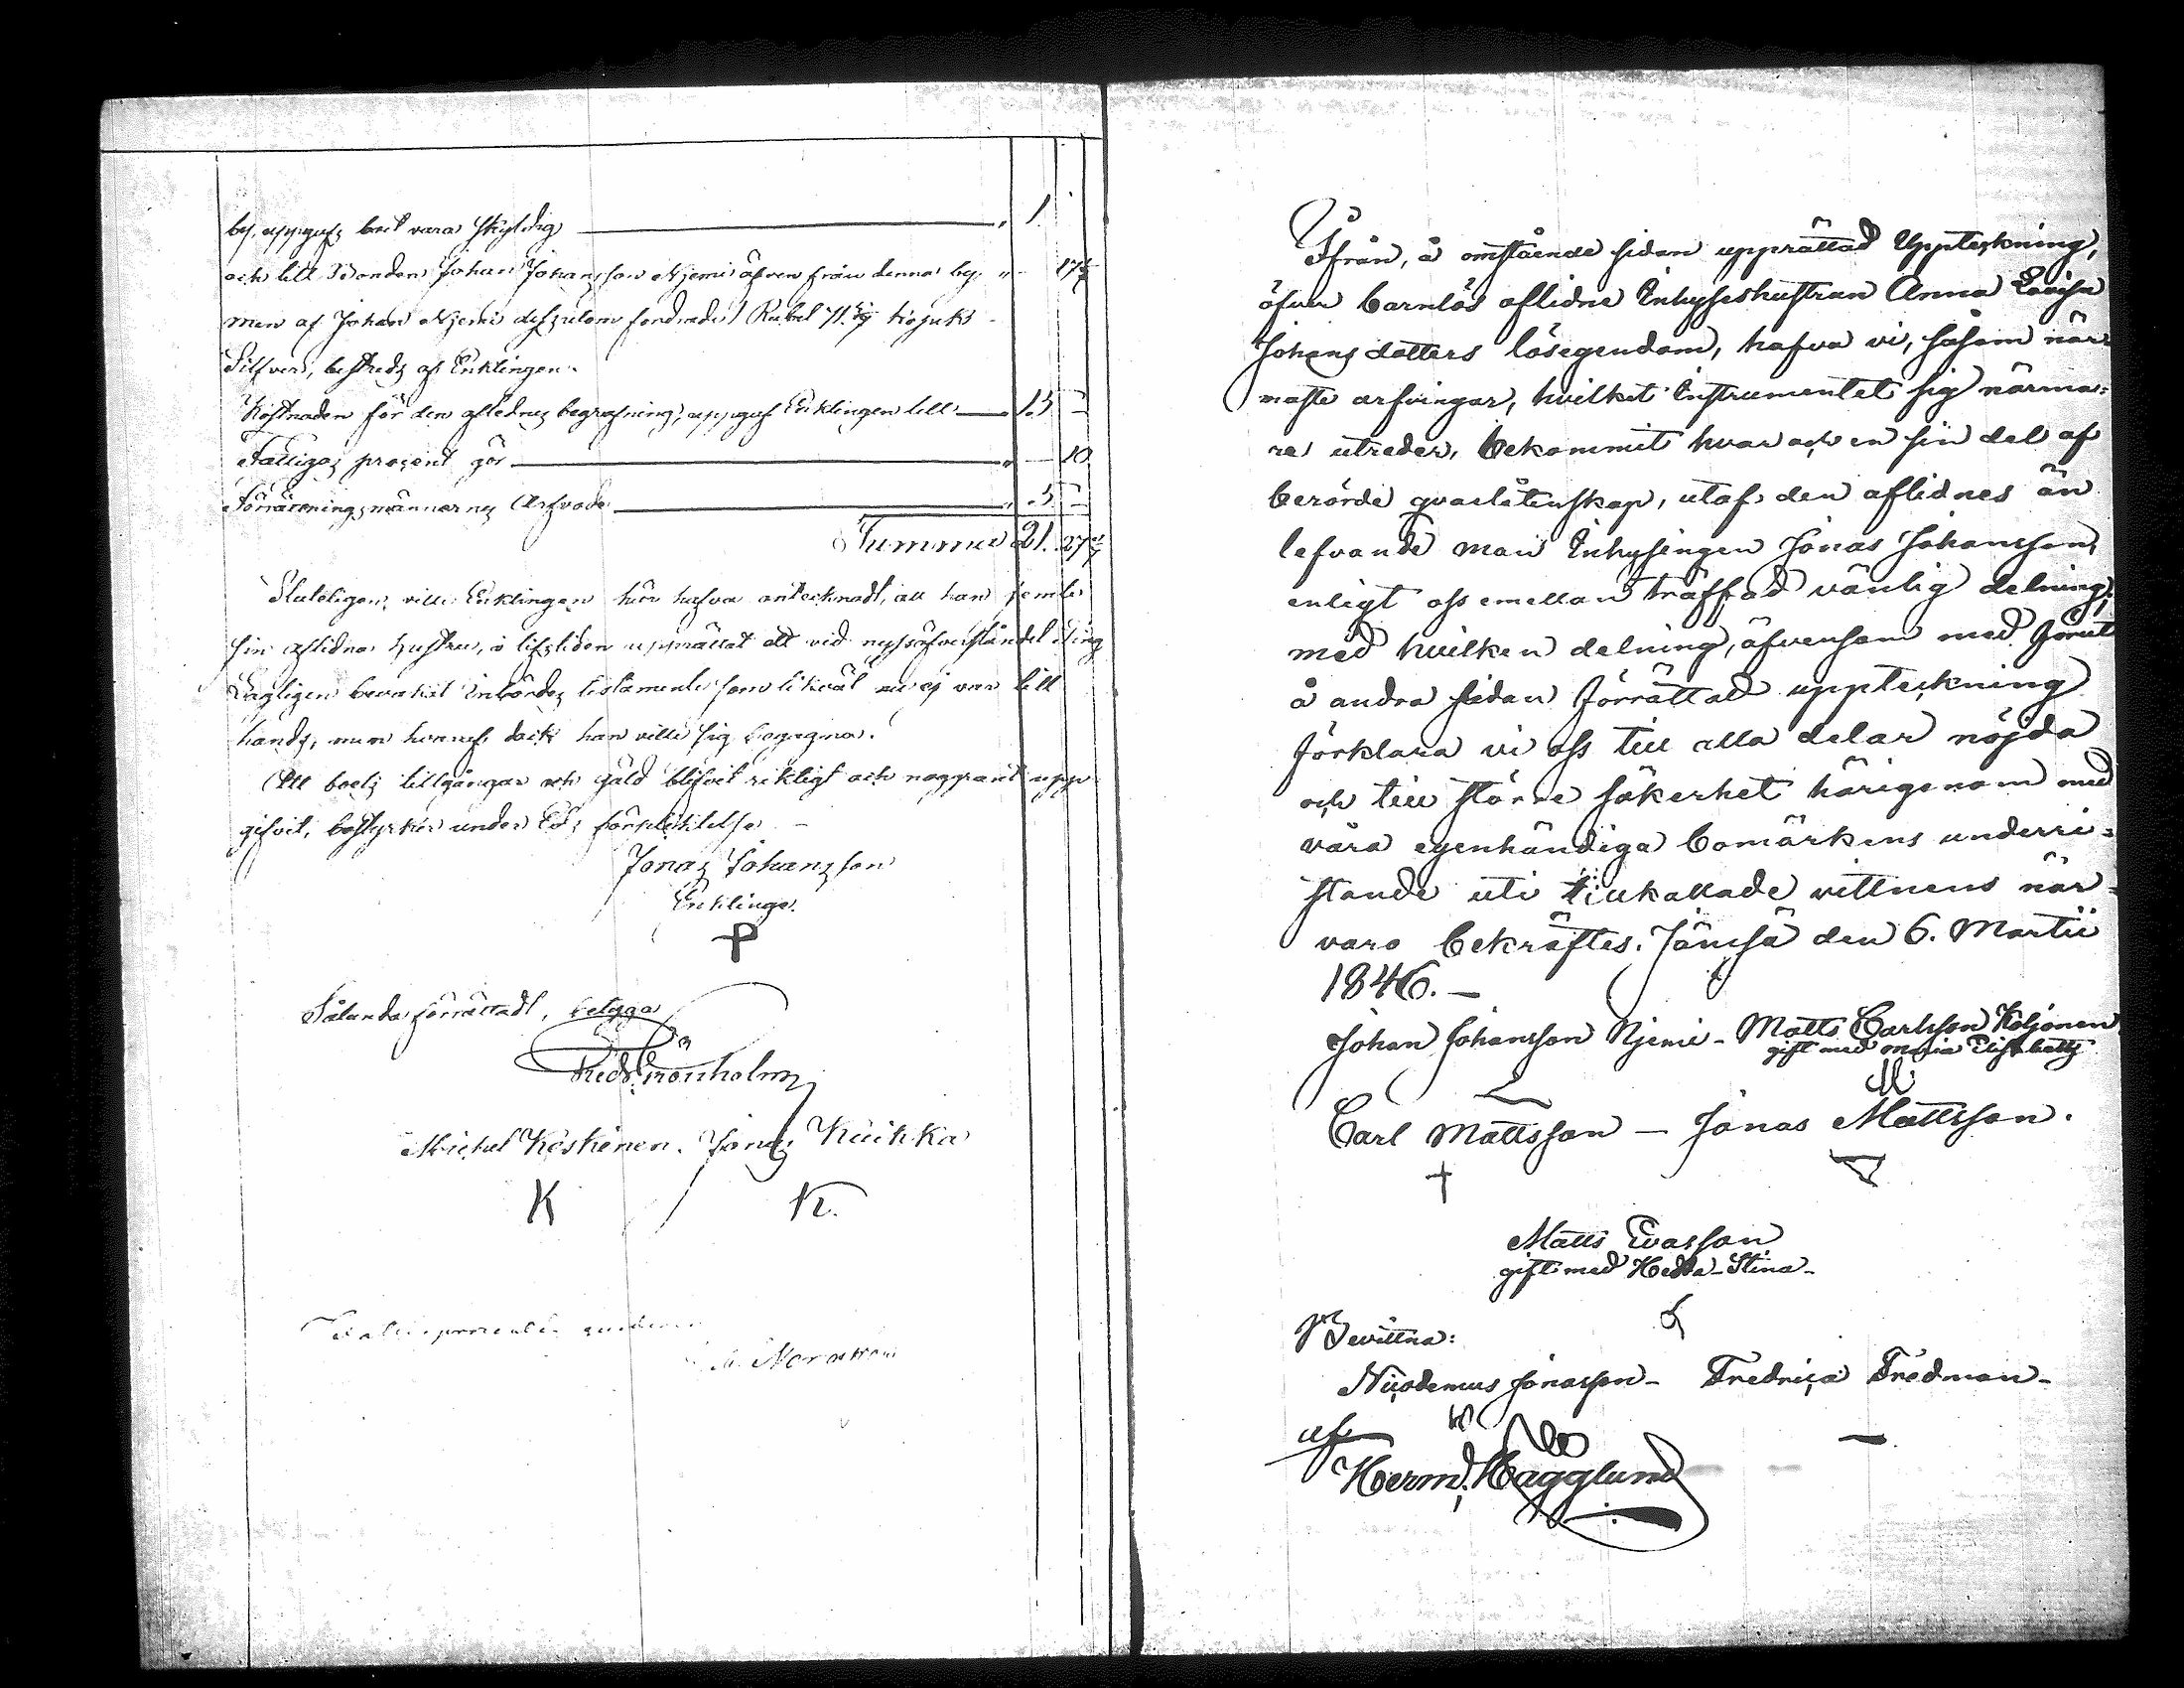 by, uppgafs boet vara skyldig — " 1.
och till Bonden Johan Johansson Njemi äfven från denna by " — 17 1/7
men af Johan Njemi dessutom fordrade 1 Rubel 71 3/7 kopek
Silfver, bestreds af Enklingen.
Kostnaden för den aflednes begrafning, uppgaf Enklingen till — 15 —
Fattigas procent gör — " — 10
Förrättningsmännernes Arfvode — " 5 —
Summa 21. 27 1/7
Sluteligen, ville Enklingen här hafva antecknadt, att han jemte
sin aflidna hustru, i lifstiden upprättat ett vid nyssöfverståndet ting
Lagligen bevakat Inbördes testamente som likväl nu ej var till
hands, men hvaraf dock han ville sig begagna.
Att boets tillgångar och gäld blifvit riktigt och noggrant upp
gifvit, bestyrker under Eds förpliktelse —
Jonas Johansson
Enklinge.
P
Sålunda förrättadt, betyga
Fredr Grönholm
Michel Koskinen. Jonas Kuikka
K K.
Fattigprocenten
Ifrån, å omstående sidan upprättad Uppteckning,
öfver barnlös aflidne Inhyseshustrun Anna Lovisa
Johansdotters lösegendom, hafva vi, såsom när-
maste arfvingar, hvilket Instrumentet sig närma=
re utreder, bekommit hvar och en sin del af
berörde qvarlåtenskap, utaf den aflidnes än
lefvande man Inhysingen Jonas Johansson,
enligt oss emellan träffad vänlig delning;
med hvilken delning, äfvensom med förut
å andra sidan förrättad uppteckning
förklara vi oss till alla delar nöjda
och till större säkerhet härigenom med
våra egenhändiga bomärkens underri=
stande uti tillkallade vittnens när=
varo bekräftes. Jämsä den 6. Martii
1846. —
Johan Johansson Njemi - Matts Carlsson Koljonen
gift med Maria Elisabeth
Carl Mattsson — Jonas Mattsson.
Matts Evasson
gift med Hedda-Stina -
Bevittna:
Nicodemus Jonasson - Fredrica Fredman -
af
Herm. Hägglund